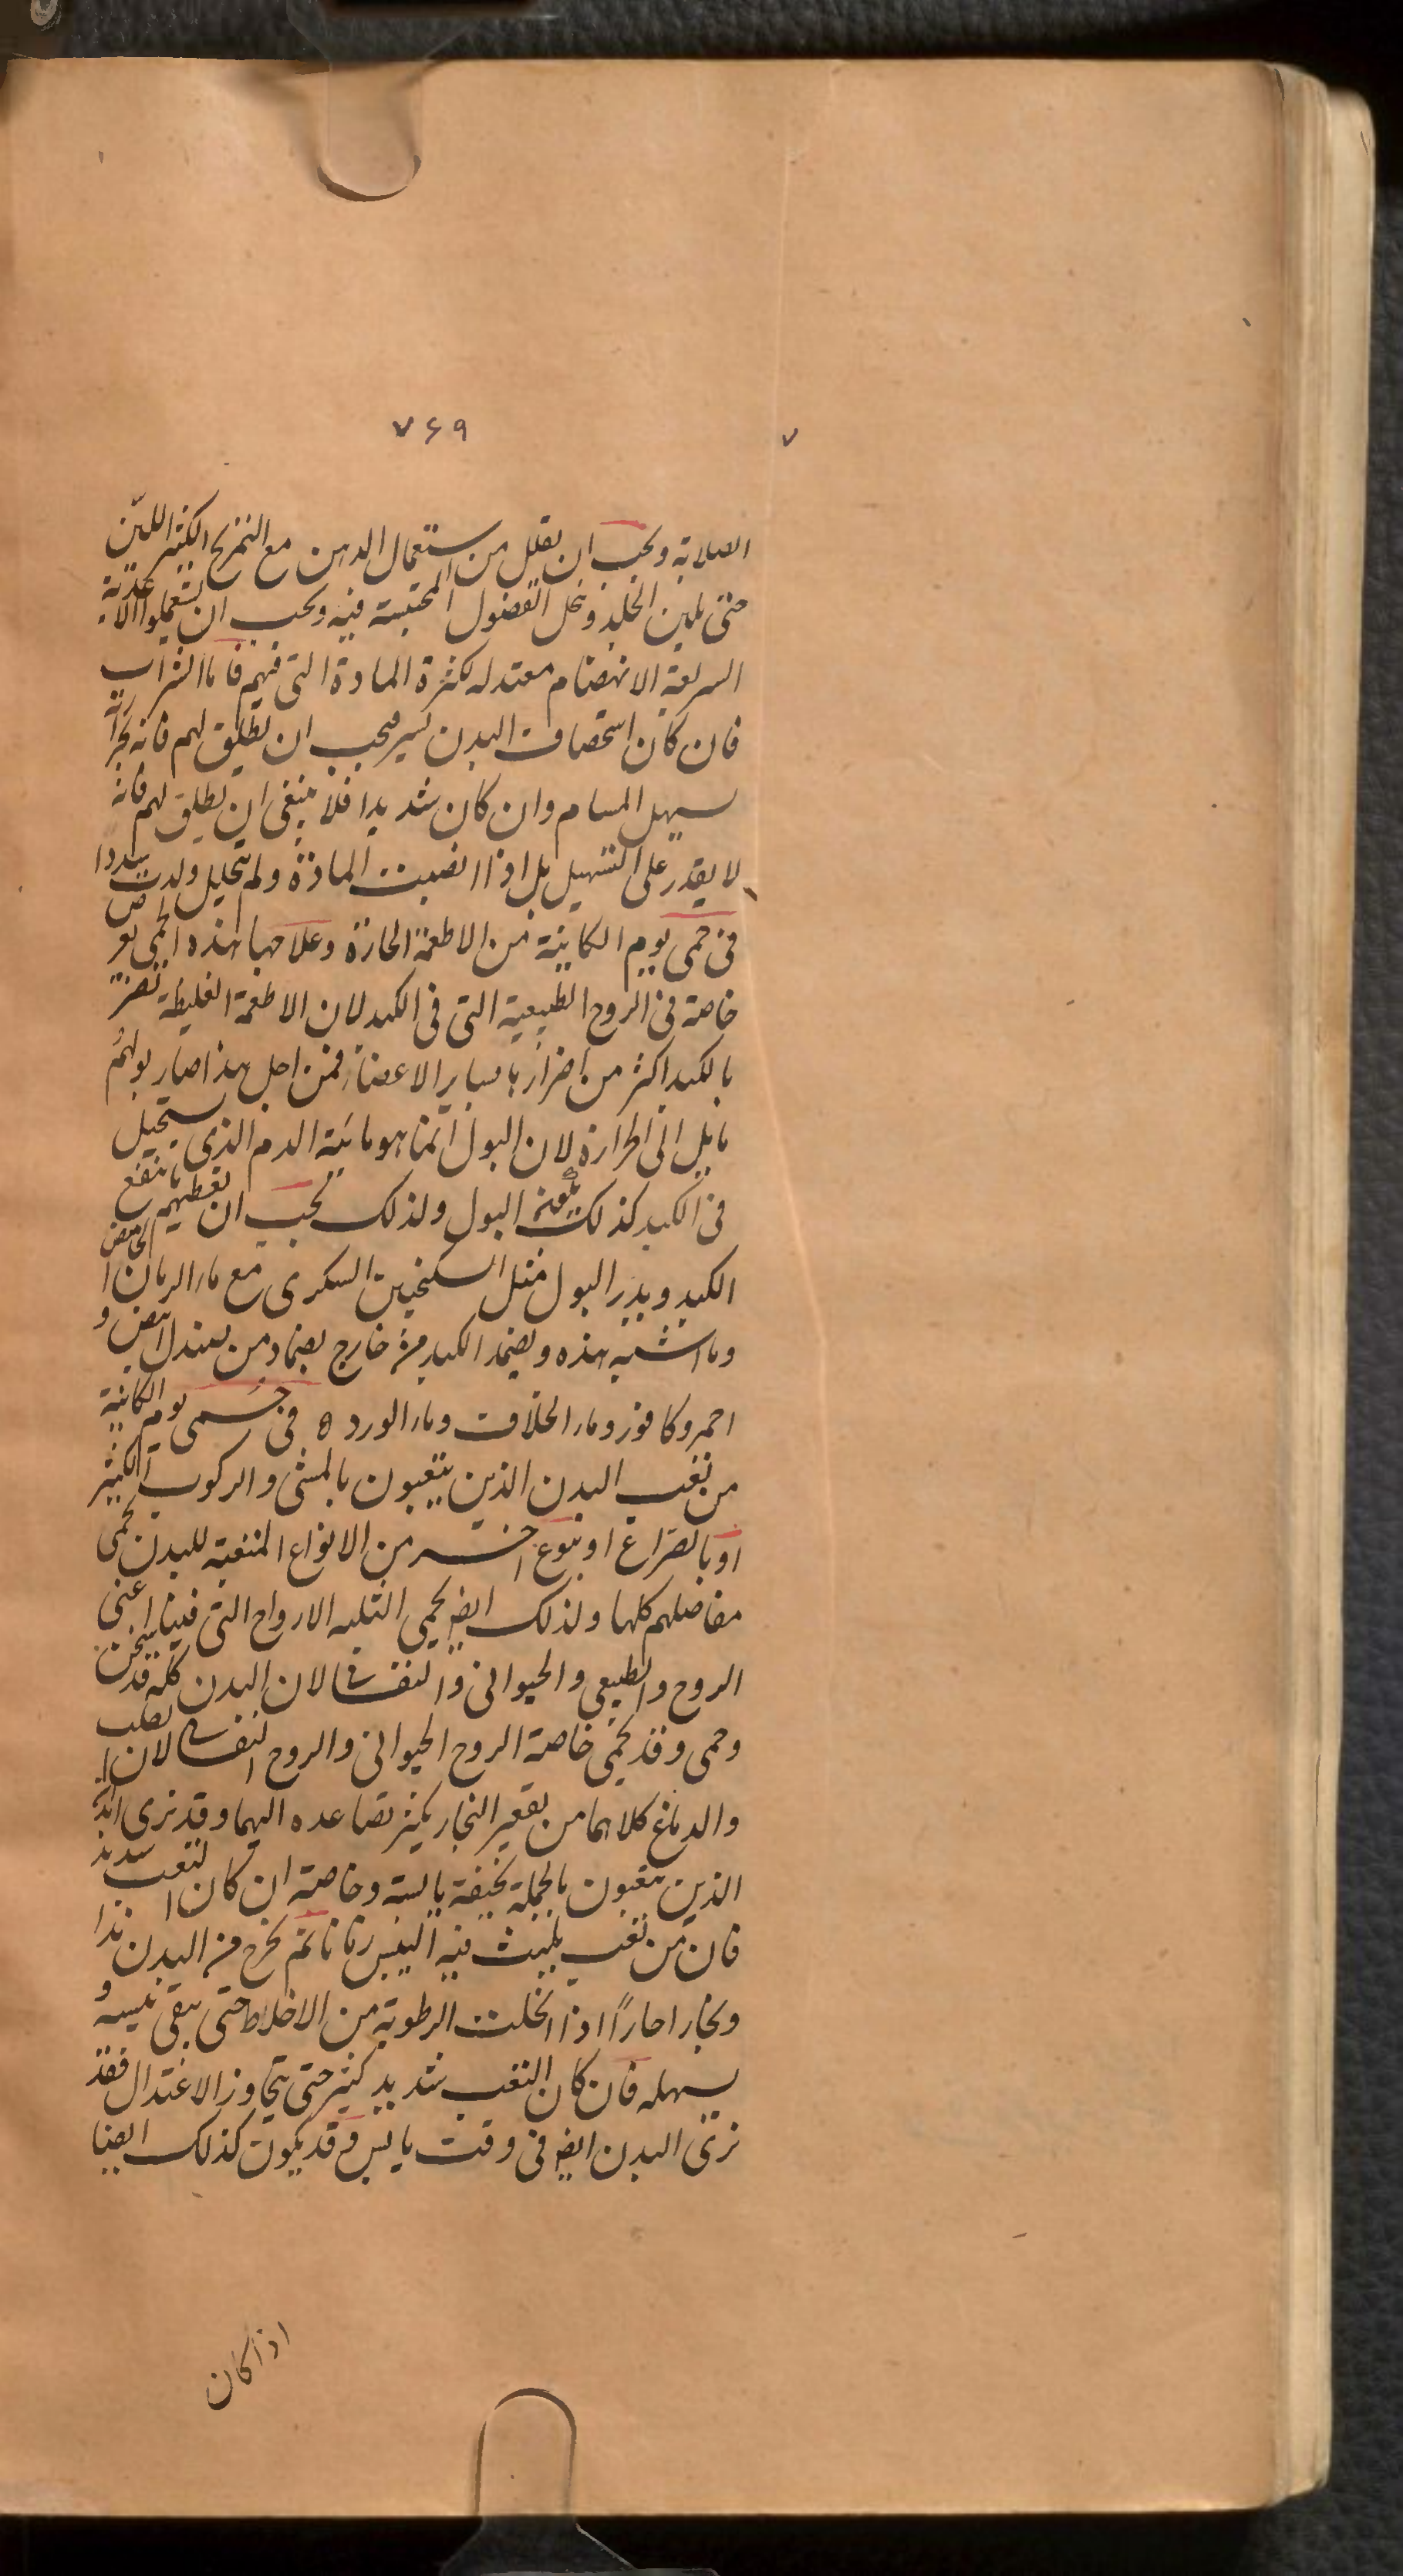 ۷۶۹
۷
الصلابة ويجب ان يقلل من استعمال الدهن مع التمريخ الكثير اللين
حتى يلين الجلد وتحل الفضول المحتبسة فيه ويجب ان يستعملوا الاغذية
السريعة الانهضام معتدله لكثرة المادة التى فيهم فاما الشراب
فان كان استحصاف البدن يسير فيجب ان يطلق لهم فانه
يسهل المسام وان كان شديدا فلا ينبغى ان يطلق لهم فانه
لا يقدر على التسهيل بل اذا انصبت المادة ولم تتحلل ولدت سددا
فى حمى يوم الكاينة من الاطعمة الحارة وعلاجها هذه الحمى تعرض
خاصة فى الروح الطبيعية التى فى الكبد لان الاطعمة الغليظة تضر
بالكبد اكثر من اضرارها بساير الاعضاء فمن اجل هذا صار بولهم
مايل الى الحرارة لان البول انما هو مائية الدم الذى يستحيل
فى الكبد كذلك يكون البول ولذلك يجب ان نعطيهم ما ينفع
الكبد ويدر البول مثل السكنجبين السكرى مع ماء الرمان الحامض
وما اشبه هذه ويضمد الكبد من خارج بضماد من صندل ابيض و
احمر وكافور وماء الخلاف وماء الورد ه فى حمى يوم الكاينة
من تعب البدن الذين يتعبون بالمشى والركوب الكثير
او بالصراع او بنوع اخر من الانواع المتعبة للبدن تحمى
مفاصلهم كلها ولذلك ايض تحمى الثلثه الارواح التى فينا اعنى
الروح والطبيعى والحيوانى والنفسانى لان البدن كله قد سخن
وحمى وقد تحمى خاصة الروح الحيوانى والروح النفسانى لان القلب
والدماغ كلاهما من تقعير البخار يكثر تصاعده اليهما وقد نرى ابدان
الذين يتعبون بالجملة نحيفة يابسة وخاصة ان كان التعب شديد
فان من تعب يلبث فيه اليبس زمانا ثم يخرج من البدن ندا
وبخارا حارا اذا انحلت الرطوبة من الاخلاط حتى يبقى يبسه و
يسهله فان كان التعب شديد كثير حتى يتجاوز الاعتدال فقد
نرى البدن ايض فى وقت يابس وقد يكون كذلك ايضا
اذا كان